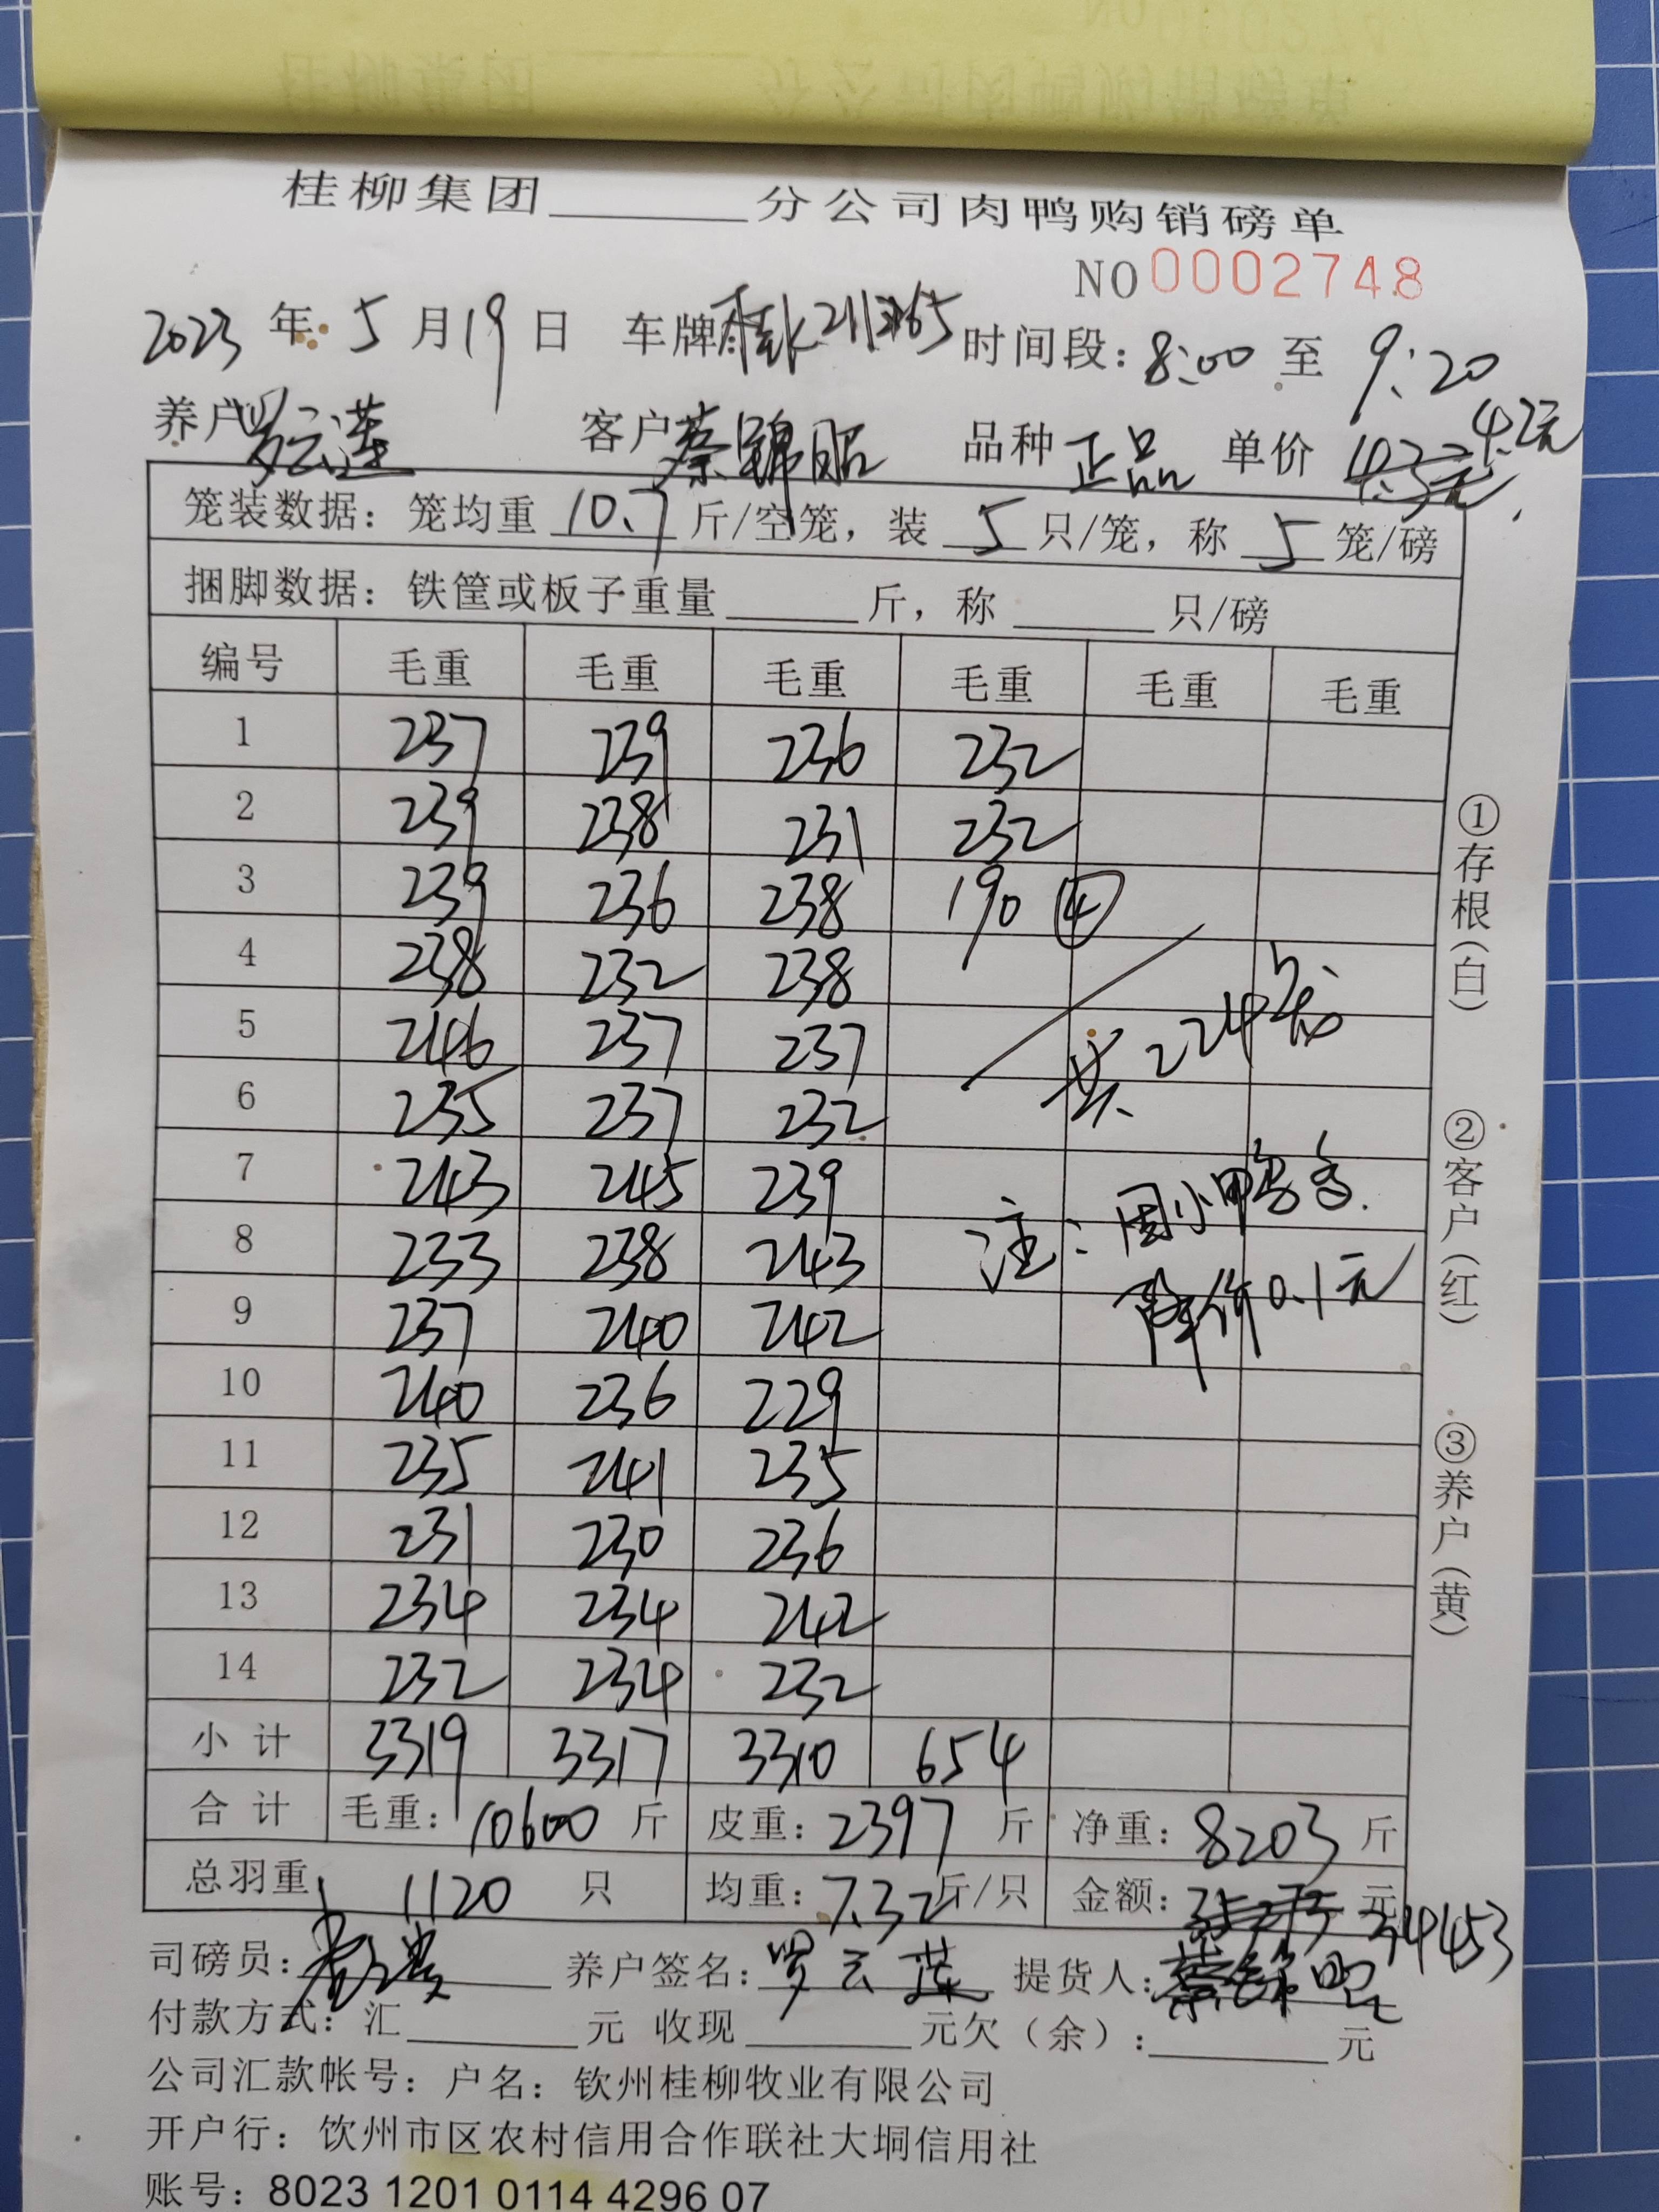 桂柳集团______分公司肉鸭购销磅单
NO 0002748
2023 年 5 月 19 日 车牌 时间段: 8:00 至 9:20
养户 罗云莲 客户 蔡锦昭 品种 正品 单价 4.3元 4.2元
笼装数据: 笼均重 10.7 斤/空笼, 装 5 只/笼, 称 5 笼/磅
捆脚数据: 铁筐或板子重量______斤, 称______只/磅
编号 毛重 毛重 毛重 毛重 毛重 毛重
1 237 239 236 232
2 239 238 231 232
3 239 236 238 190 ④
4 238 232 238
5 246 237 237
共224笼
6 235 237 232
7 243 245 239
注: 因小鸭多.
8 233 238 243
降价0.1元
9 237 240 242
10 240 236 229
11 235 241 235
12 231 230 236
13 234 234 242
14 232 234 232
小计 3319 3317 3310 654
合计 毛重: 10600 斤 皮重: 2397 斤 净重: 8203 斤
总羽重 1120 只 均重: 7.32 斤/只 金额: 35273 元 34453
司磅员: 养户签名: 罗云莲 提货人: 蔡锦昭
付款方式: 汇______元 收现______元欠(余):______元
公司汇款帐号: 户名: 钦州桂柳牧业有限公司
开户行: 钦州市区农村信用合作联社大垌信用社
账号: 8023 1201 0114 4296 07
①存根(白)
②客户(红)
③养户(黄)